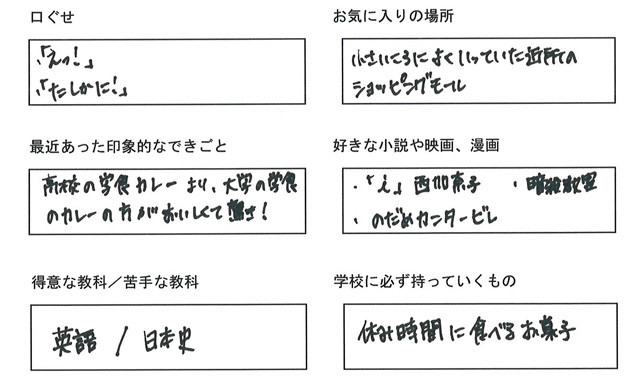 口ぐせ
・「えっ！」
・「たしかに！」
お気に入りの場所
小さいころによくいっていた近所の
ショッピングモール
最近あった印象的なできごと
高校の学食カレーより、大学の学食
のカレーの方がおいしくて驚き！
好きな小説や映画、漫画
・「え」西加奈子 ・暗殺教室
・のだめカンタービレ
得意な教科／苦手な教科
英語 / 日本史
学校に必ず持っていくもの
休み時間に食べるお菓子